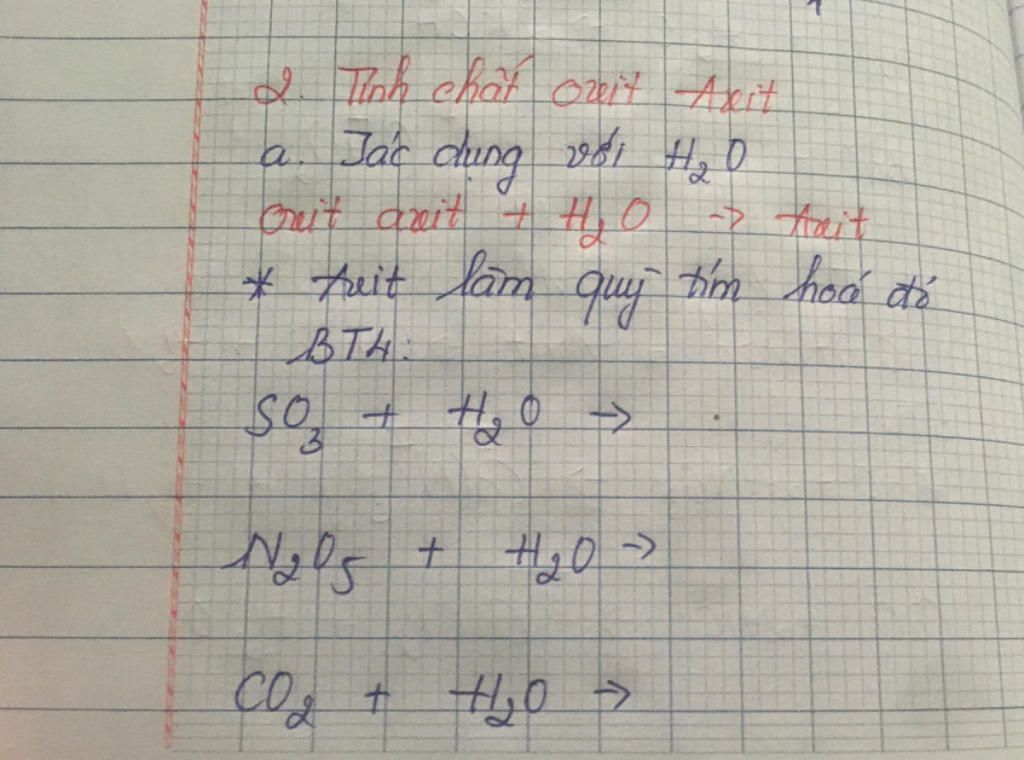 2. Tính chất oxit Axit
a. Tác dụng với H₂O
oxit axit + H₂O → Axit
* Axit làm quỳ tím hoá đỏ
BTH:
SO₃ + H₂O →
N₂O₅ + H₂O →
CO₂ + H₂O →